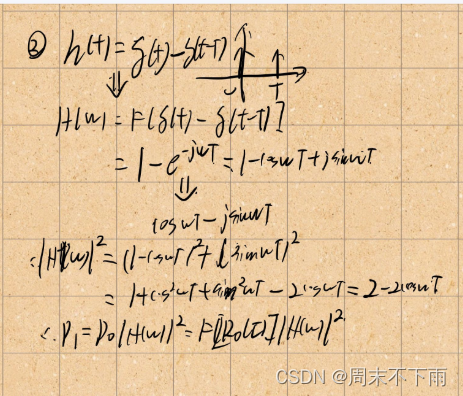 ② h(t) = δ(t) - δ(t-T)
⇓
H(w) = F[δ(t) - δ(t-T)]
= 1 - e^{-jwT} = 1 - coswT + jsinwT
⇓
coswT - jsinwT
∴ |H(w)|² = (1 - coswT)² + (sinwT)²
= 1 + cos²wT + sin²wT - 2coswT = 2 - 2coswT
∴ P₁ = P₀|H(w)|² = F[R₀(τ)]|H(w)|²
CSDN @周末不下雨